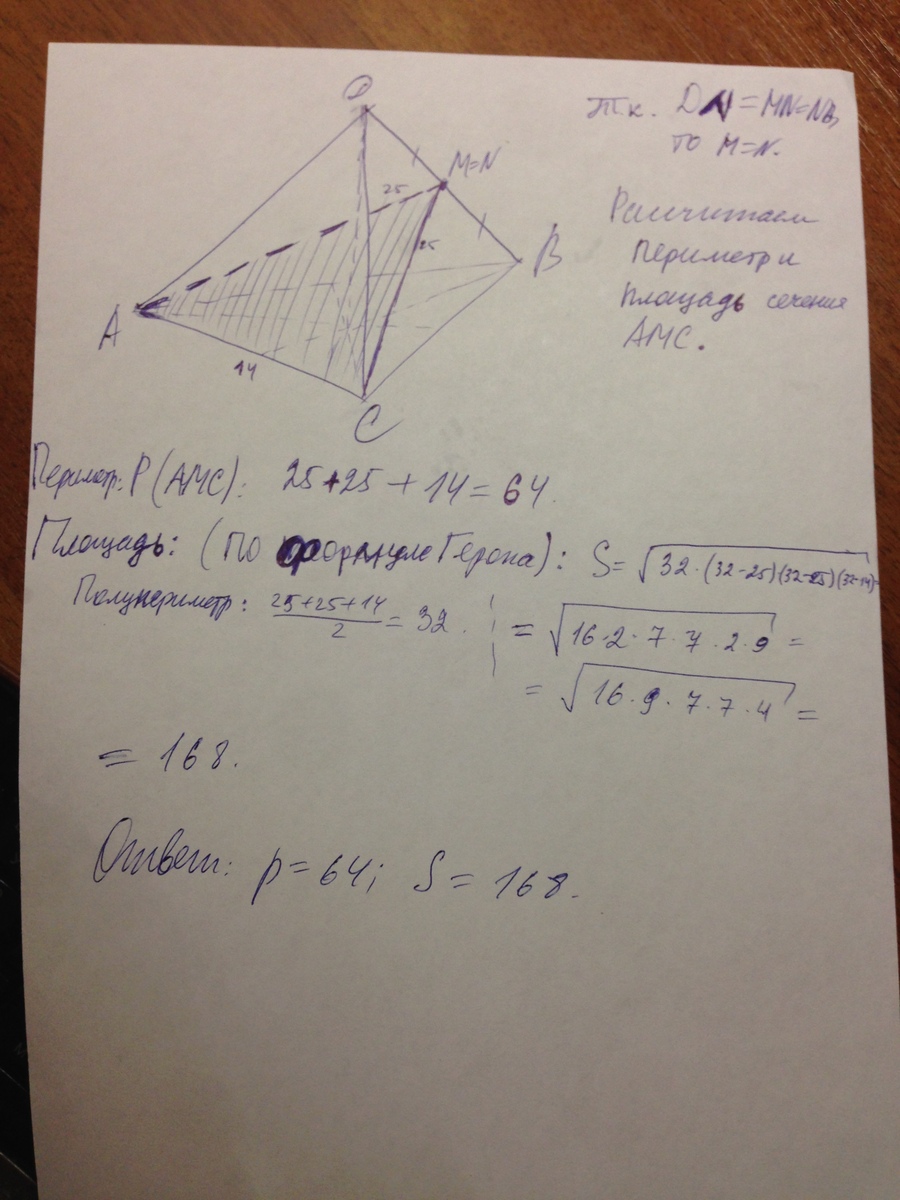 D
M=N
25
25
B
A
14
C
Т.к. DN=MN=NB,
то M=N.
Рассчитаем
периметр и
площадь сечения
АМС.
Периметр: P(AMC): 25+25+14=64.
Площадь: (по формуле Герона): S=√32·(32-25)(32-25)(32-14)=
Полупериметр: 25+25+14/2=32.
=√16·2·7·7·2·9=
=√16·9·7·7·4=
= 168.
Ответ: p=64; S=168.